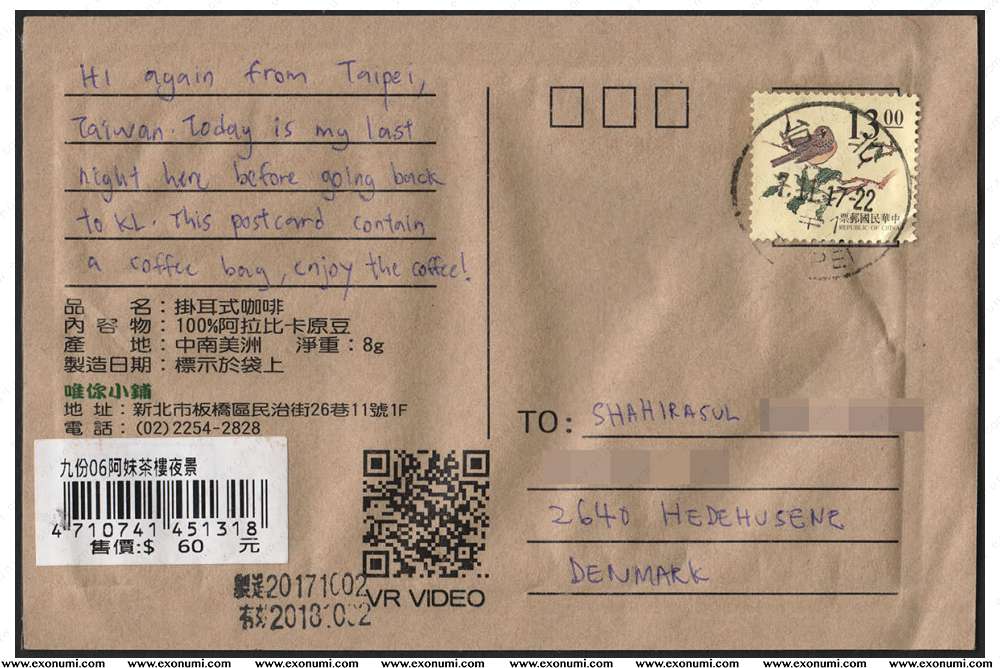 HI again from Taipei,
Taiwan. Today is my last
night here before going back
to KL. This postcard contain
a coffee bag, enjoy the coffee!
品 名：掛耳式咖啡
內 容 物：100%阿拉比卡原豆
產 地：中南美洲 淨重：8g
製造日期：標示於袋上
唯你小舖
地 址：新北市板橋區民治街26巷11號1F
電 話：(02)2254-2828
九份06阿妹茶樓夜景
4 710741 451318
售價:$ 60 元
製造20171002
有效2018.10.02
VR VIDEO
13 00
中華民國郵票
REPUBLIC OF CHINA
台
17-22
TO: SHAHIRASUL
2640 HEDEHUSENE
DENMARK
www.exonumi.com www.exonumi.com www.exonumi.com www.exonumi.com www.exonumi.com www.exonumi.com www.exonumi.com www.exonumi.com